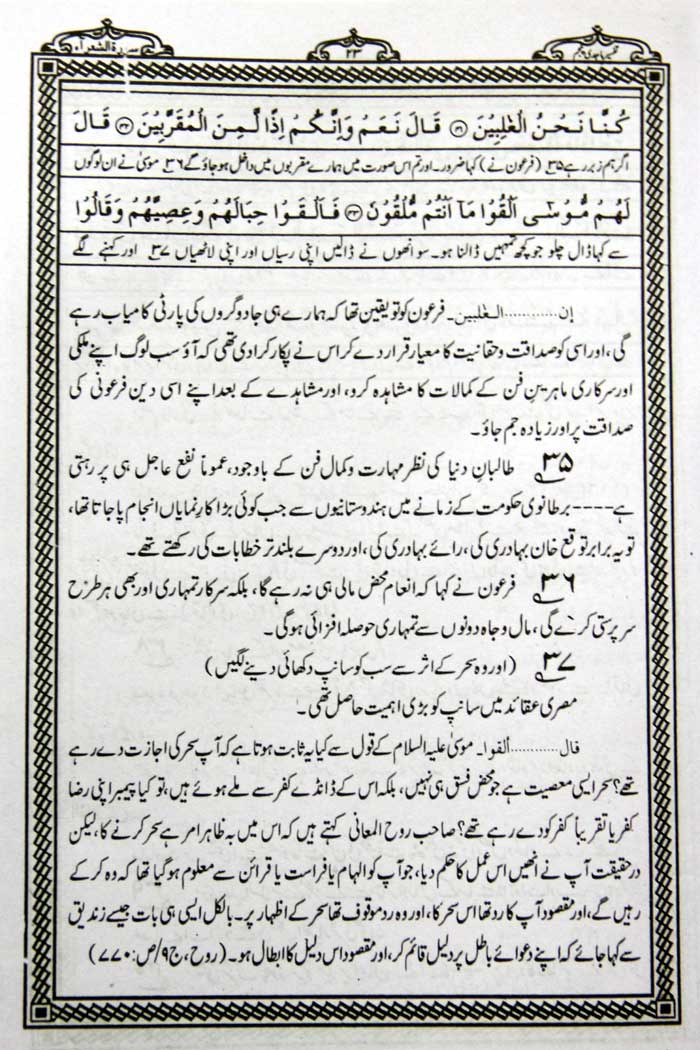 تفسیر ماجدی پنجم
۲۳
سورۃ الشعرآء
كُنَّا نَحْنُ الْغٰلِبِيْنَ ﴿۴۱﴾ قَالَ نَعَمْ وَاِنَّكُمْ اِذًا لَّمِنَ الْمُقَرَّبِيْنَ ﴿۴۲﴾ قَالَ
اگر ہم زبر رہے ۳۵ (فرعون نے) کہا ضرور۔ اور تم اس صورت میں ہمارے مقربوں میں داخل ہو جاؤ گے ۳۶ موسیٰ نے ان لوگوں
لَهُمْ مُّوْسٰٓى اَلْقُوْا مَآ اَنْتُمْ مُّلْقُوْنَ ﴿۴۳﴾ فَاَلْقَوْا حِبَالَهُمْ وَعِصِيَّهُمْ وَقَالُوْا
سے کہا ڈال چلو جو کچھ تمہیں ڈالنا ہو۔ سو انھوں نے ڈالیں اپنی رسیاں اور اپنی لاٹھیاں ۳۷ اور کہنے لگے
إن...........الغٰلبين۔ فرعون کو تو یقین تھا کہ ہمارے ہی جادوگروں کی پارٹی کامیاب رہے
گی، اور اسی کو صداقت و حقانیت کا معیار قرار دے کر اس نے پکار کرا دی تھی کہ آؤ سب لوگ اپنے ملکی
اور سرکاری ماہرینِ فن کے کمالات کا مشاہدہ کرو، اور مشاہدے کے بعد اپنے اسی دین فرعونی کی
صداقت پر اور زیادہ جم جاؤ۔
۳۵ طالبانِ دنیا کی نظر مہارت و کمال فن کے باوجود، عموماً نفع عاجل ہی پر رہتی
ہے---- برطانوی حکومت کے زمانے میں ہندوستانیوں سے جب کوئی بڑا کارِ نمایاں انجام پا جاتا تھا،
تو یہ برابر توقع خان بہادری کی، رائے بہادری کی، اور دوسرے بلند تر خطابات کی رکھتے تھے۔
۳۶ فرعون نے کہا کہ انعام محض مالی ہی نہ رہے گا، بلکہ سرکار تمہاری اور بھی ہر طرح
سرپرستی کرے گی، مال و جاہ دونوں سے تمہاری حوصلہ افزائی ہوگی۔
۳۷ (اور وہ سحر کے اثر سے سب کو سانپ دکھائی دینے لگیں)
مصری عقائد میں سانپ کو بڑی اہمیت حاصل تھی۔
قال............القوا۔ موسیٰ علیہ السلام کے قول سے کیا یہ ثابت ہوتا ہے کہ آپ سحر کی اجازت دے رہے
تھے؟ سحر ایسی معصیت ہے جو محض فسق ہی نہیں، بلکہ اس کے ڈانڈے کفر سے ملے ہوئے ہیں، تو کیا پیمبر اپنی رضا
کفر یا تقریباً کفر کو دے رہے تھے؟ صاحب روح المعانی کہتے ہیں کہ اس میں بہ ظاہر امر ہے سحر کرنے کا، لیکن
درحقیقت آپ نے انھیں اس عمل کا حکم دیا، جو آپ کو الہام یا فراست یا قرائن سے معلوم ہو گیا تھا کہ وہ کر کے
رہیں گے، اور مقصود آپ کا رد تھا اس سحر کا، اور وہ رد موقوف تھا سحر کے اظہار پر۔ بالکل ایسی ہی بات جیسے زندیق
سے کہا جائے کہ اپنے دعوائے باطل پر دلیل قائم کر، اور مقصود اس دلیل کا ابطال ہو۔ (روح، ج۹/ص:۷۷۰)